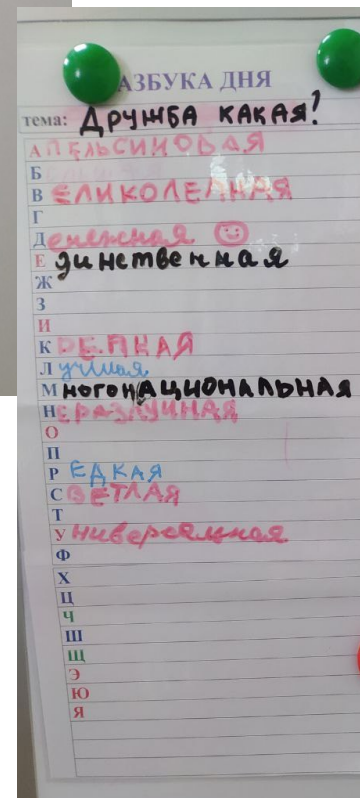 АЗБУКА ДНЯ
тема: ДРУЖБА КАКАЯ?
АПЕЛЬСИНОВАЯ
Б
ВЕЛИКОЛЕПНАЯ
Г
Денежная
Единственная
Ж
З
И
КРЕПКАЯ
Лучшая
МногонАЦИОНАЛЬНАЯ
НЕРАЗЛУЧНАЯ
О
П
РЕДКАЯ
СВЕТЛАЯ
Т
Универсальная
Ф
Х
Ц
Ч
Ш
Щ
Э
Ю
Я